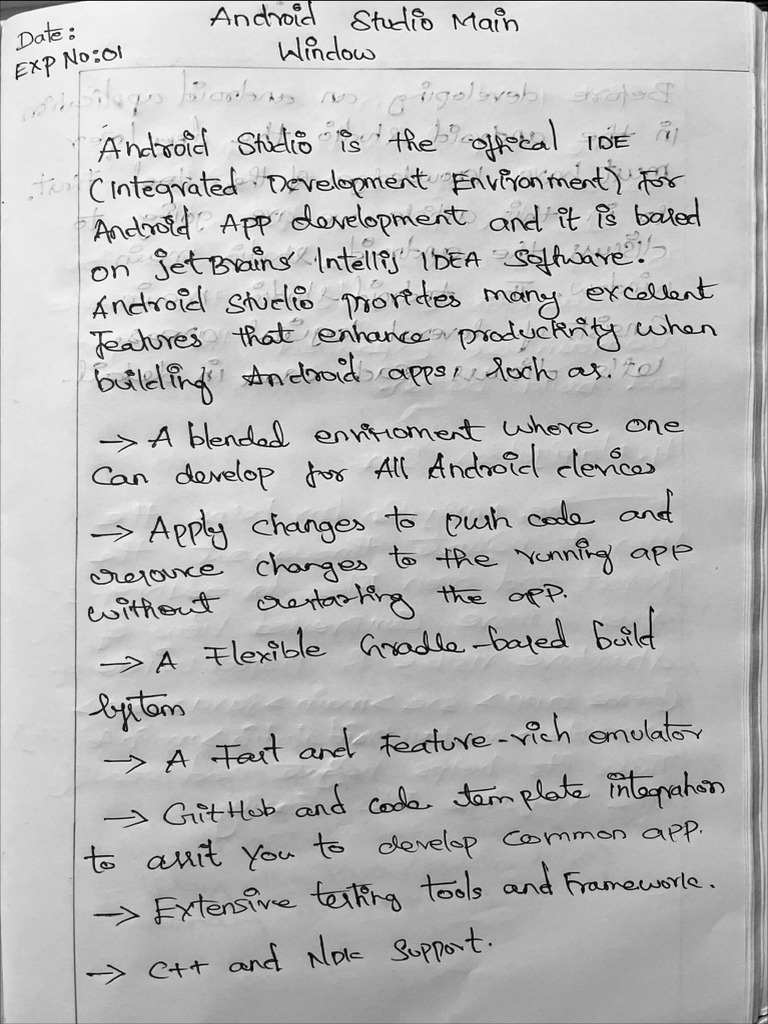 Date:
Exp No:01
Android Studio Main
Window
Android Studio is the offical IDE
(Integrated Development Environment) for
Android App development and it is based
on jetBrains' Intellij IDEA software.
Android Studio provides many excellent
features that enhance productivity when
building Android apps, such as.
→ A blended enviroment where one
can develop for All Android devices
→ Apply changes to push code and
resource changes to the running app
without restarting the app.
→ A Flexible Gradle-based build
system
→ A Fast and Feature-rich emulator
→ GitHub and code template integration
to assit you to develop common app.
→ Extensive testing tools and Framework.
→ C++ and NDK support.